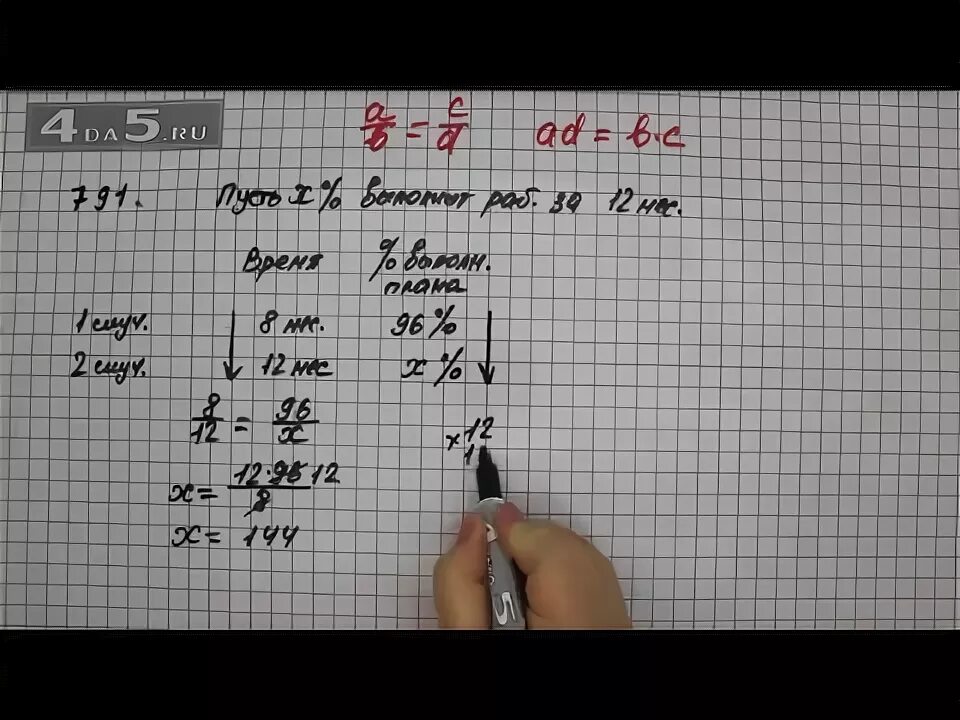 4DA5.RU
a/b = c/d ad = b·c
791. Пусть x% выполнит раб. за 12 мес.
Время % выполн. плана
1 случ. 8 мес. 96%
2 случ. 12 мес x%
8/12 = 96/x
x = 12·96 12/8
x = 144
×12
1